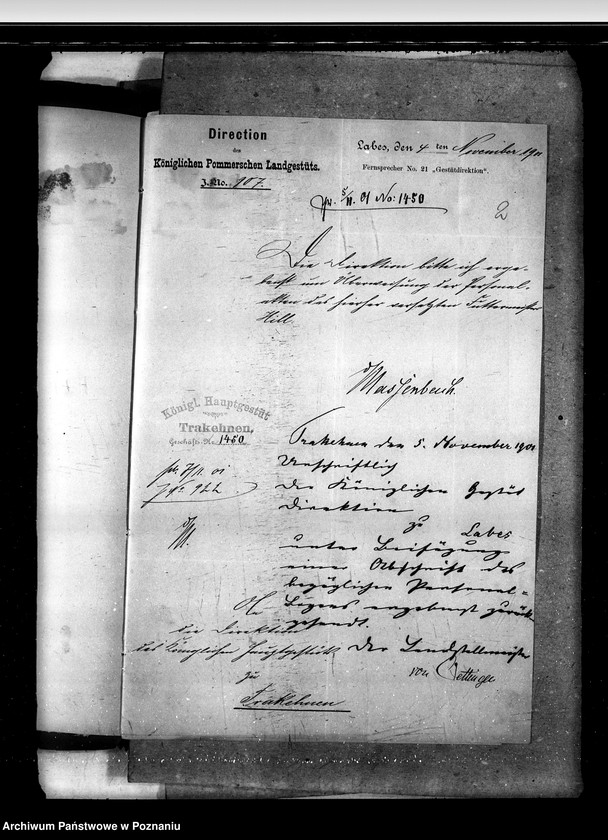 Direction
des
Königlichen Pommerschen Landgestüts.
J. No. 907.
Labes, den 4 ten November 1901
Fernsprecher No. 21 „Gestütdirektion“.
pr. 5/11. 01 No: 1450
2
Die Direktion bitte ich erge-
benst um Überweisung der Personal-
akten des hierher versetzten Futtermeister
Hill.
Massenbach.
Königl. Hauptgestüt
Trakehnen.
Geschäfts-Nr. 1450
Trakehnen den 5. November 1901
Urschriftlich
der Königlichen Gestüt
Direktion
zu Labes
unter Beifügung
einer Abschrift des
bezüglichen Personal-
Bogens ergebenst zurück
gesandt.
Der Landstallmeister
von Oettingen
pr. 7/11. 01
J. No. 922
M.
An
die Direktion
des Königlichen Hauptgestüts
zu
Trakehnen
Archiwum Państwowe w Poznaniu